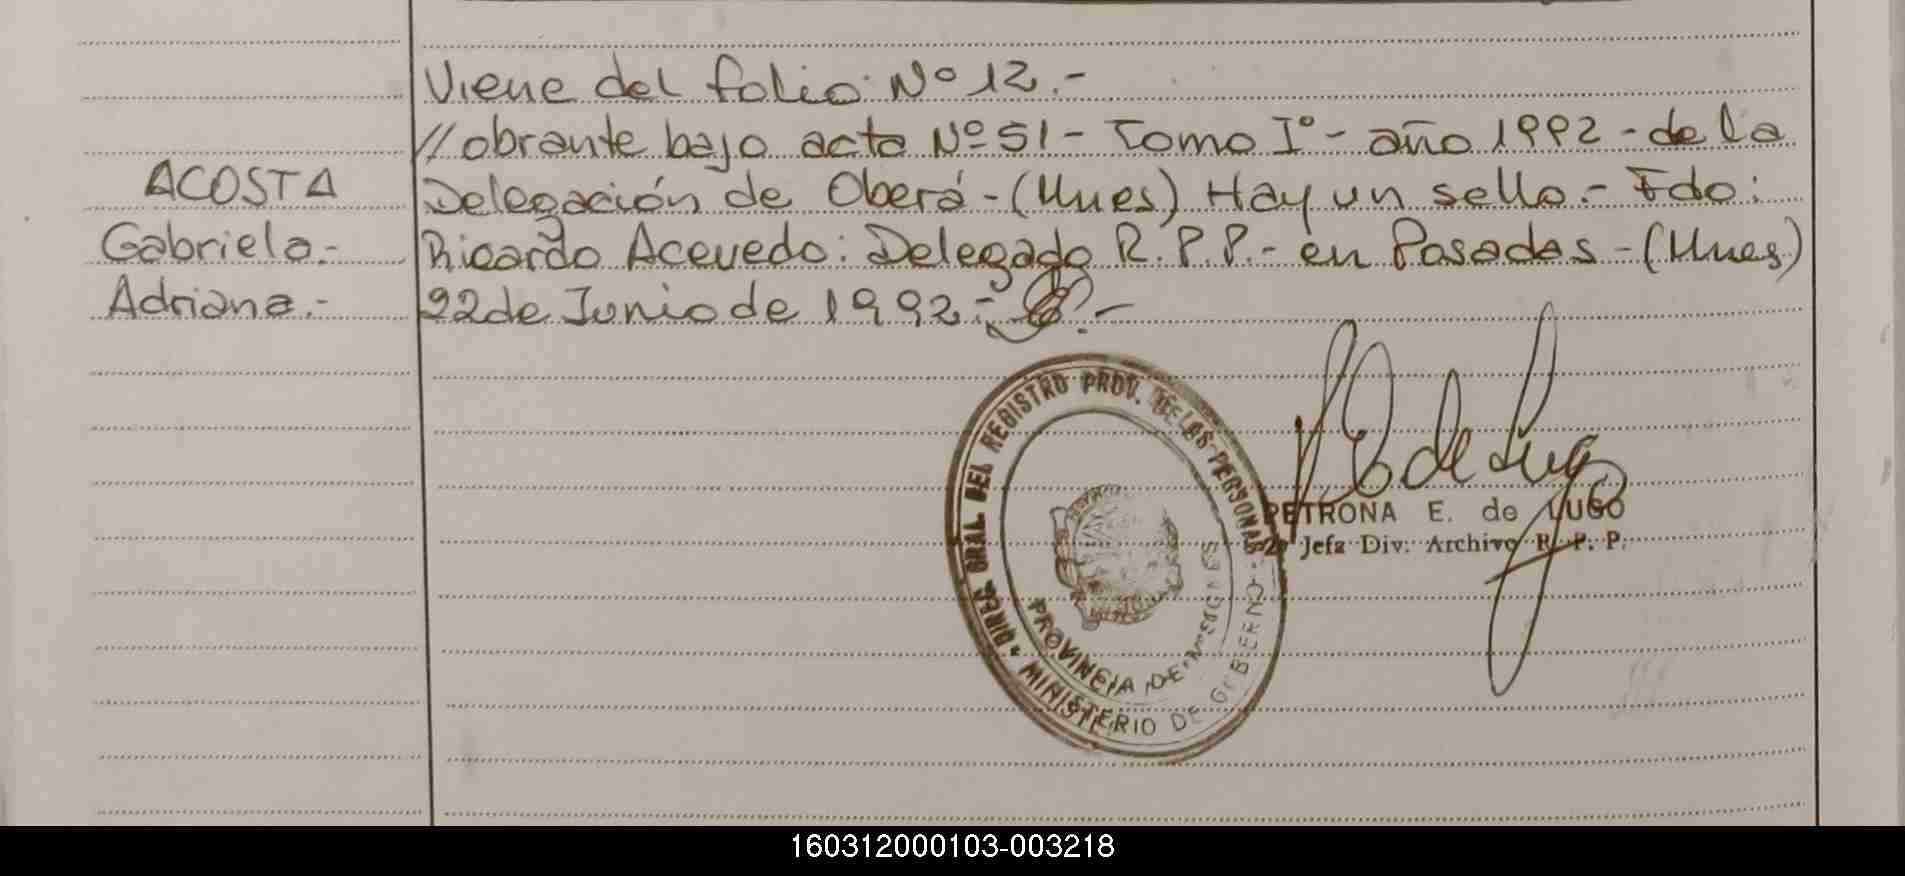 Viene del folio Nº 12.-
//obrante bajo acta Nº 51- Tomo Iº- año 1992- de la
ACOSTA
Delegación de Oberá- (Mnes) Hay un sello.- Fdo:
Gabriela.-
Ricardo Acevedo: Delegado R.P.P.- en Posadas- (Mnes)
Adriana.-
22 de Junio de 1992.-
DIREC. GRAL. DEL REGISTRO PROV. DE LAS PERSONAS
PROVINCIA DE MISIONES
MINISTERIO DE GOBIERNO
de Lugo
PETRONA E. de LUGO
2ª Jefa Div. Archivo R. P. P.
160312000103-003218